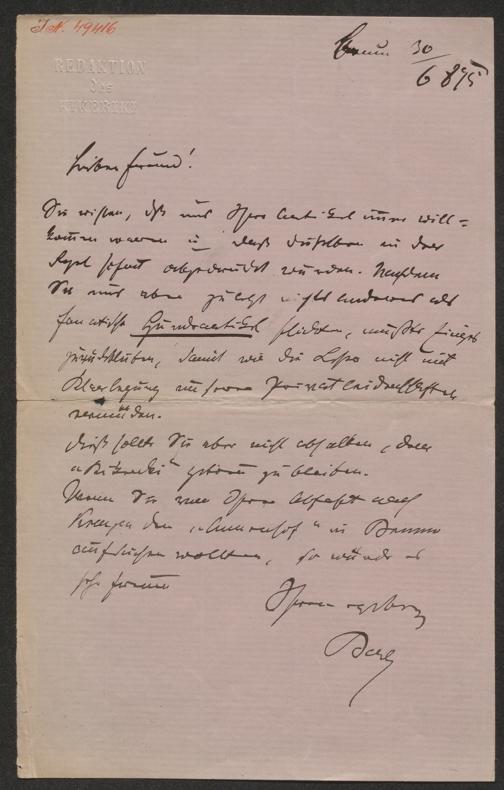 J.N. 49416
REDAKTION
des
KIKERIKI
30/6 895
Lieber Freund!
Sie wissen, daß uns Ihre Artikel immer will=
kommen waren u. daß dieselben in der
Regel sofort abgedruckt wurden. Nachdem
Sie uns aber zuletzt nichts anderes als
fanatische Hundeartikel schickten, mußte
zurückbleiben, damit wir die Leser nicht mit
unserer Privatleidenschaften
ermüden.
Dieß sollte Sie aber nicht abhalten, dem
„Kikeriki“ getreu zu bleiben.
Wenn Sie vor Ihrer Abfahrt nach
den „ “ in
aufsuchen wollten, so würde es
sehr freuen
Ihren ergebenen